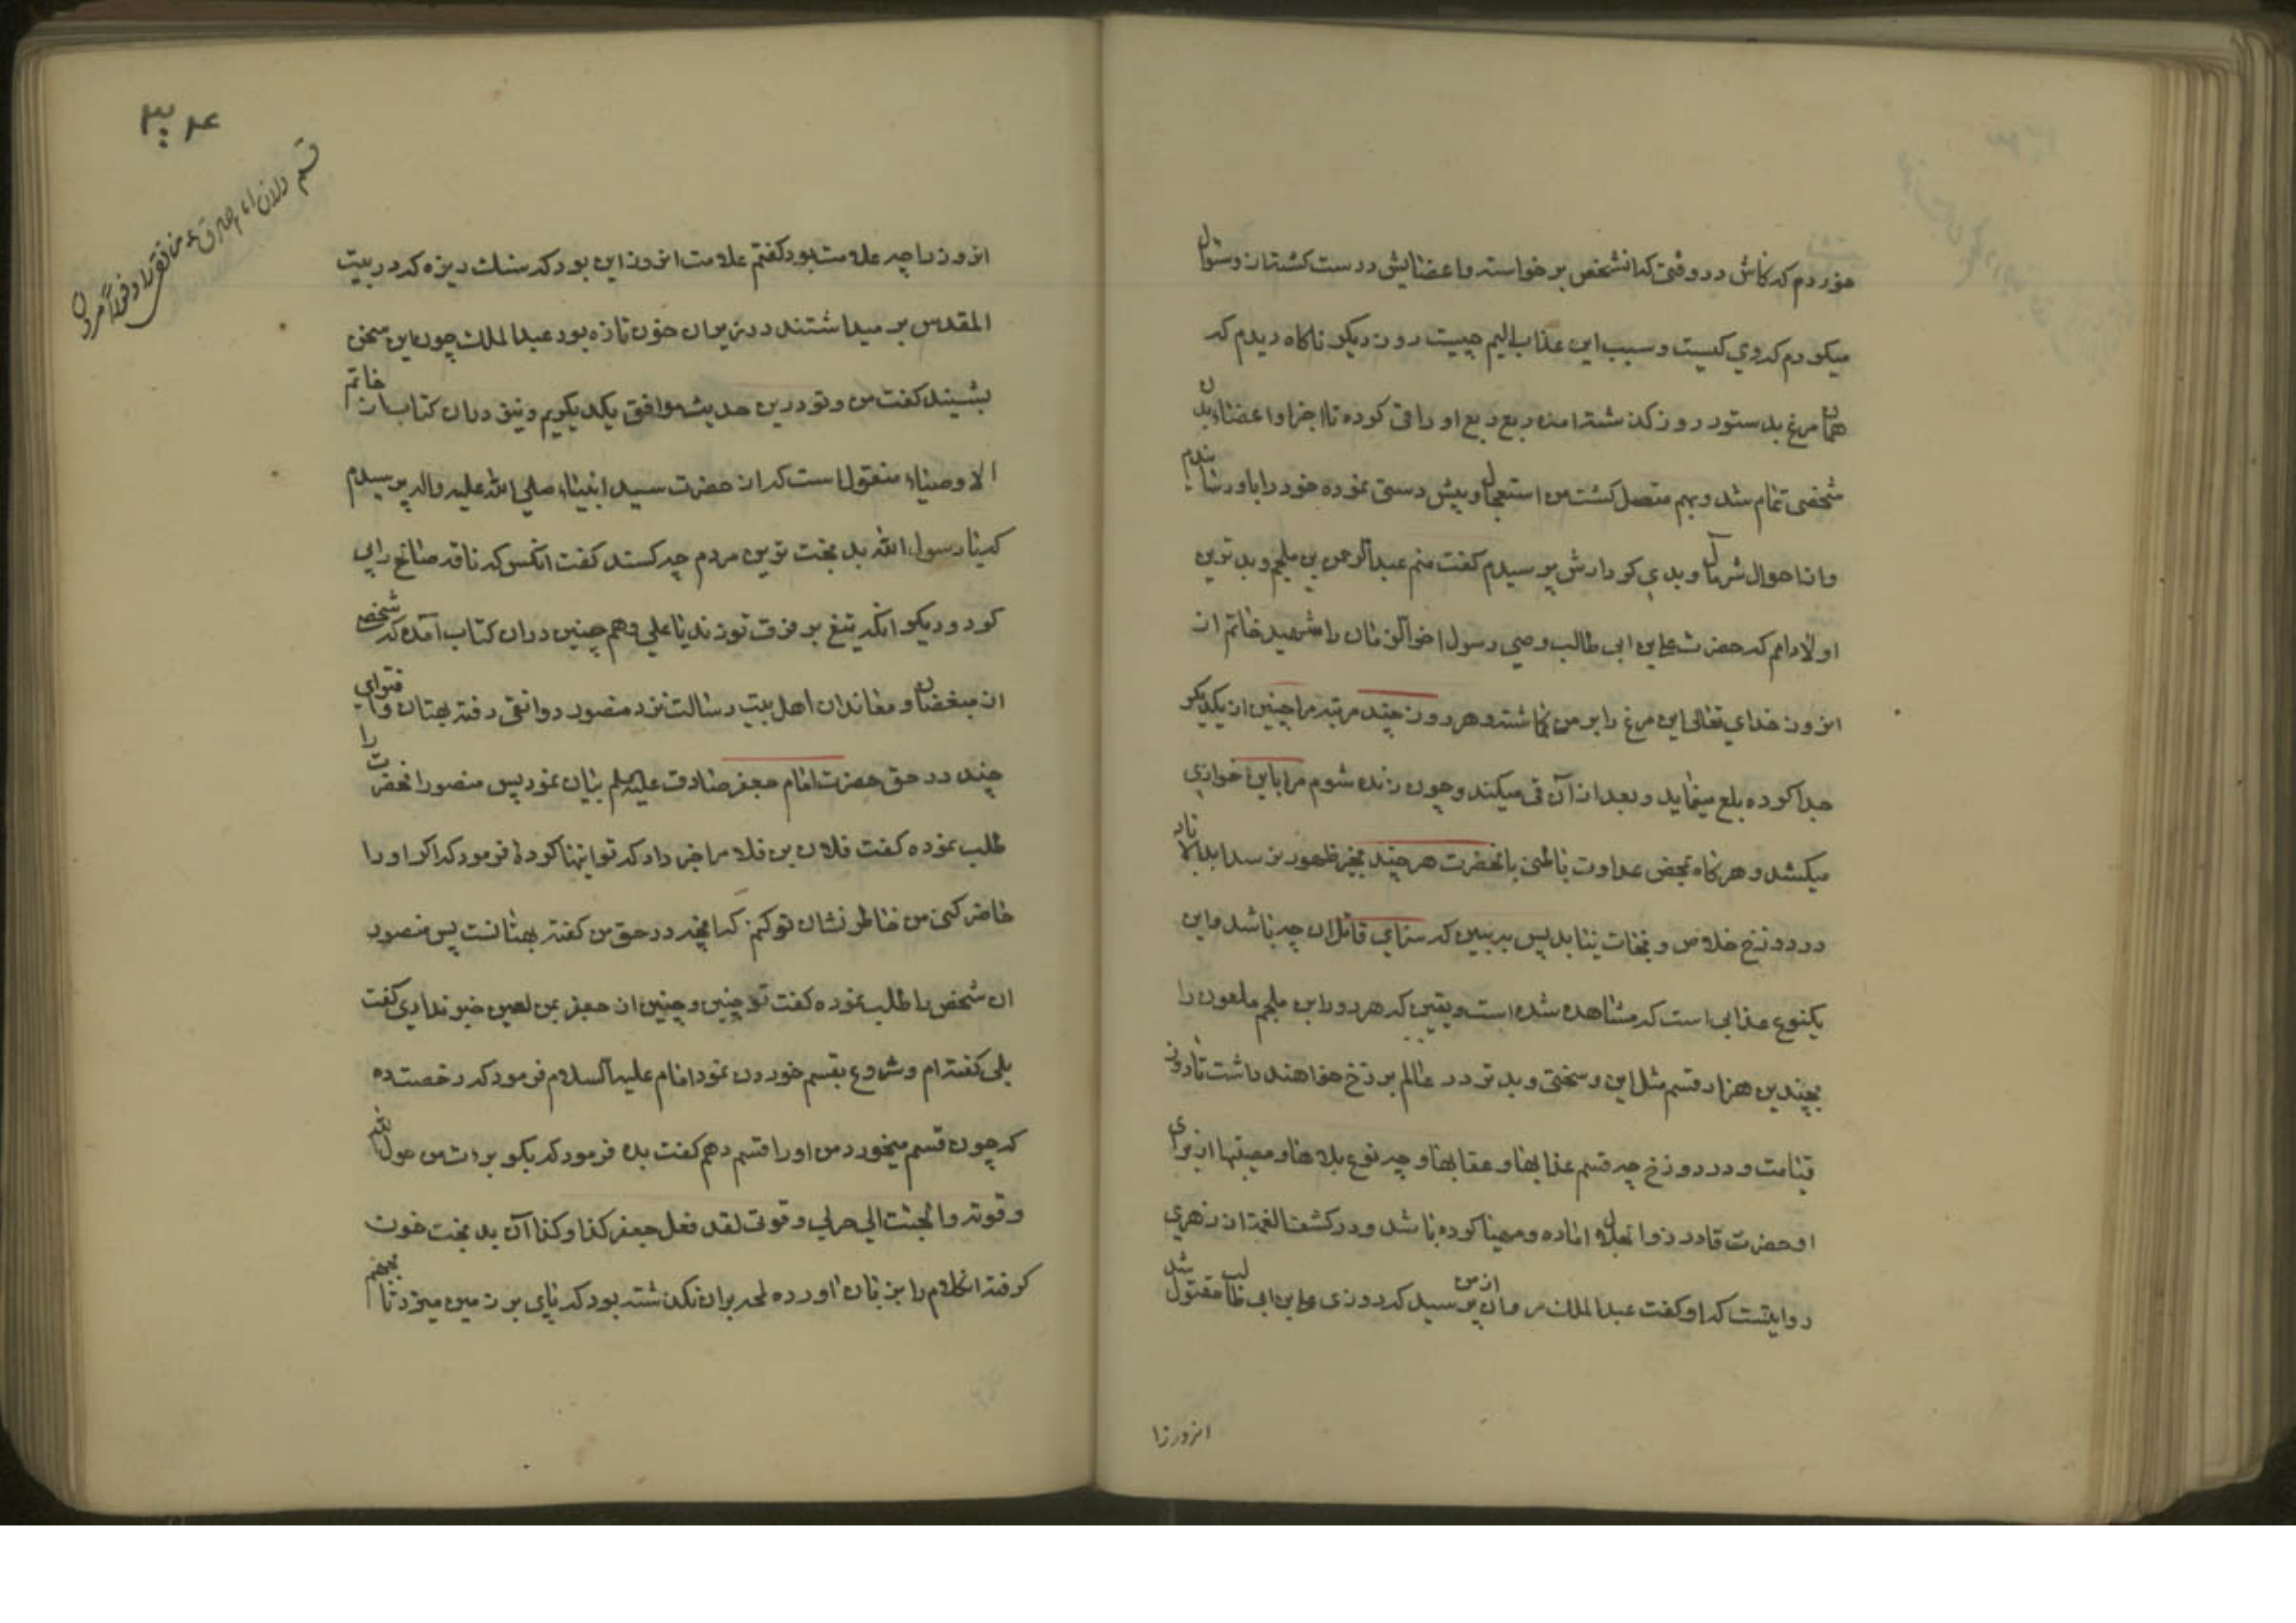 خوردم که کاش در وقتی که انشخص بر خواسته و اعضایش درست کشته از و سئوال
میکردم که وی کیست و سبب این عذاب الیم چیست روز دیکر ناکاه دیدم که
همان مرغ بدستور روز کذشته امده ربع ربع او را قی کرده تا اجزا و اعضاء بدن
شخصی تمام شد و بهم متصل کشت من استعجال و پیش دستی نموده خود را باو رسانیدم
و از احوال شر مآل و بدی کردارش پرسیدم کفت منم عبدالرحمن بن ملجم و بدترین
اولاد ادم که حضرت علی بن ابی طالب وصی رسول اخرالزمان را شهید ساختم از
انروز خدای تعالی این مرغ را بر من کماشته و هر روز چند مرتبه مرا چنین از یکدیکر
جدا کرده بلع مینماید و بعد از آن قی میکند و چون زنده شوم مرا باین خواری
میکشد و هرکاه بمحض عداوت باطنی بانحضرت هر چند بخیر ظهور نرسد ابدالاباد
در دوزخ خلاص و نجات نیابد پس ببین که سزای قاتل ان چه باشد و این
یکنوع عذابی است که مشاهده شده است و یقین که هر روز ابن ملجم ملعون را
بچندین هزار قسم مثل این و سختی و بدتر در عالم برزخ خواهند داشت تا روز
قیامت و در دوزخ چه قسم عذابها و عقابها و چه نوع بلاها و مصیبتها از برای
او حضرت قادر ذوالجلال اماده و مهیا کرده باشد و در کشف الغمه از زهری
روایتست که او کفت عبدالملک مروان از من پرسید که روزی علی بن ابی طالب مقتول شد
انروز را
۳۰۴
قسم دادن امام صادق ع منافق را و فورا مردن
انروز را چه علامت بود کفتم علامت انروز این بود که سنک ریزه که در بیت
المقدس بر میداشتند در زیر ان خون تازه بود عبدالملک چون این سخن
بشنید کفت من و تو درین حدیث موافق یکدیکریم و نیز دران کتاب از خاتم
الاوصیاء منقول است که از حضرت سید انبیاء صلی الله علیه واله پرسیدم
که یا رسول الله بدبخت ترین مردم چه کسند کفت انکس که ناقه صالح را پی
کرد و دیکر انکه تیغ بر فرق تو زند یا علی و هم چنین دران کتاب آمده که شخص
از مبغضان و معاندان اهل بیت رسالت نزد منصور دوانقی رفته بهتان و افترای
چند در حق حضرت امام جعفر صادق علیه السلم بیان نمود پس منصور انحضرت را
طلب نموده کفت فلان بن فلان مرا خبر داد که تو اینها کرده فرمود که اکر او را
حاضر کنی من خاطر نشان تو کنم که انچه در حق من کفته بهتانست پس منصور
ان شخص را طلب نموده کفت تو چنین و چنین از جعفر بمن لعین خبر نداری کفت
بلی کفته ام و شروع بقسم خوردن نمود امام علیه السلام فرمود که رخصت ده
که چون قسم میخورد من او را قسم دهم کفت بده فرمود که بکو برءت من حول الله
و قوته و التجئت الی حولی و قوتی لقد فعل جعفر کذا و کذا آن بدبخت خون
کرفته انکلام را بزبان اورده لحه بران نکذشته بود که پای بر زمین میزد تا بجهنم